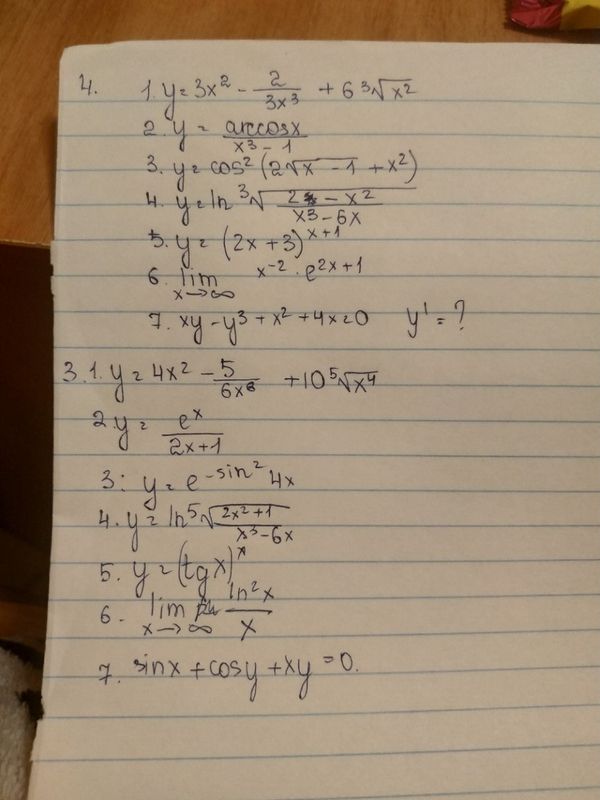 4. 1. y = 3x² - 2/(3x³) + 6 ³√x²
2. y = arccosx/(x³ - 1)
3. y = cos² (2√x - 1 + x²)
4. y = ln ³√((2x - x²)/(x³ - 6x))
5. y = (2x + 3)^(x+1)
6. lim x→∞ x⁻² · e^(2x+1)
7. xy - y³ + x² + 4x = 0 y' = ?
3. 1. y = 4x² - 5/(6x⁶) + 10 ⁵√x⁴
2. y = eˣ/(2x+1)
3: y = e^(-sin² 4x)
4. y = ln ⁵√((2x² + 1)/(x³ - 6x))
5. y = (tg x)ˣ
6. lim x→∞ ln²x/x
7. sinx + cosy + xy = 0.